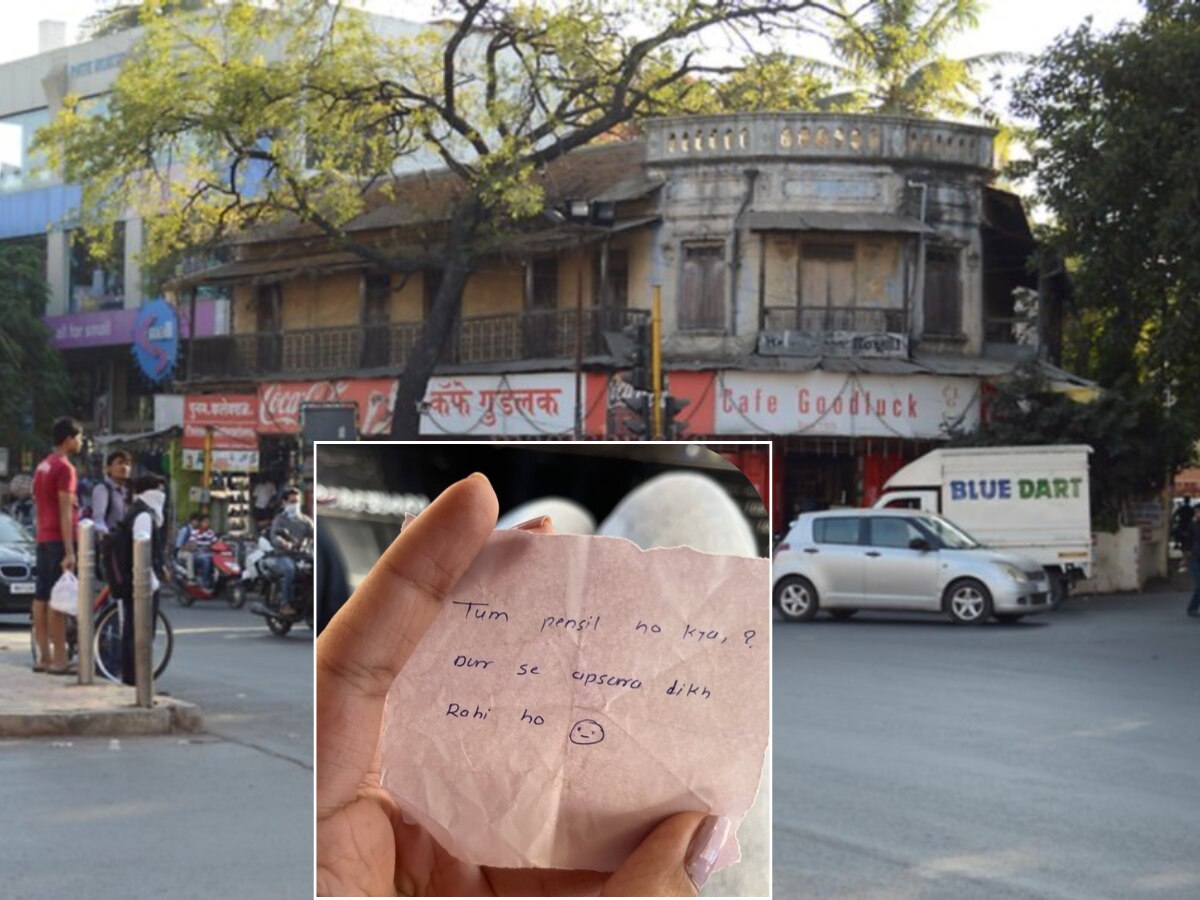 all for small
पुनम कलेक्शन
Coca-Cola
कॅफे गुडलक
Cafe Goodluck
BLUE DART
Tum pensil ho kya, ?
Durr se apsara dikh
Rahi ho